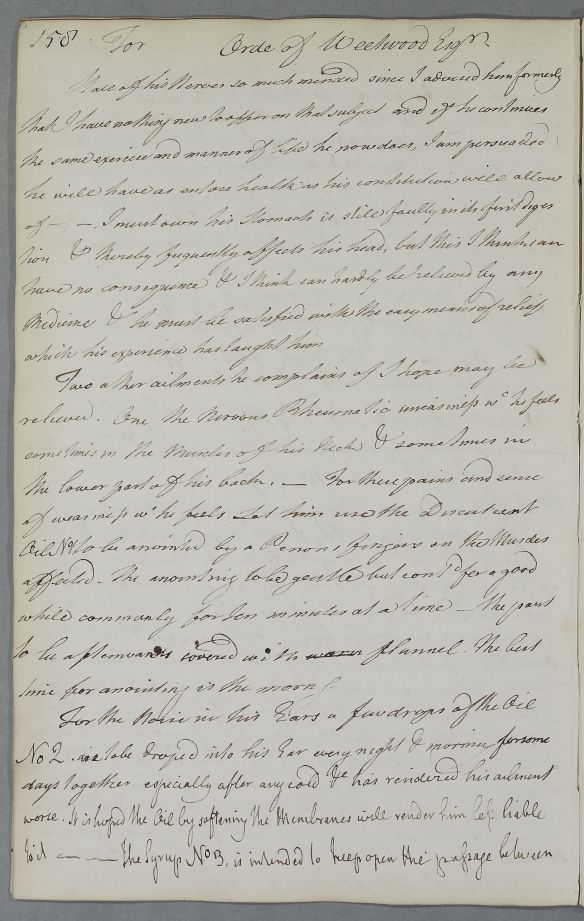 158. For Orde of Weelwood Esqr.
State of his Nerves so much mended since I advised him formerly
that I have nothing new to offer on that subject and if he continues
the same exercise and manner of life he now does, I am persuaded
he will have as entire health as his constitution will allow
of - - . I must own his Stomach is still faulty in its first diges
tion & thereby frequently affects his head, but this I think can
have no consequence & I think can hardly be relieved by any
Medicine & he must be satisfied with the easy means of relief
which his experience has taught him
Two other ailments he complains of I hope may be
relieved. One the Nervous Rheumatic uneasiness wc he feels
sometimes in the Muscles of his Neck & sometimes in
the lower part of his back. — For these pains and sense
of weariness wc he feels Let him use the Discutient
Oil No1 to be anointed by a Persons fingers on the Muscles
affected. the anointing to be gentle but contd for a good
while commonly for ten minutes at a time — the part
to be afterwards covered with warm flannel. The best
time for anointing is the morng
For the Noise in his Ears a few drops of the Oil
No 2. is to be droped into his Ear every night & morning for some
days together especially after any cold &c has rendered his ailment
worse. It is hoped the Oil by softening the Membranes will render him less liable
to it — — The Syrup No3, is intended to keep open the passage between